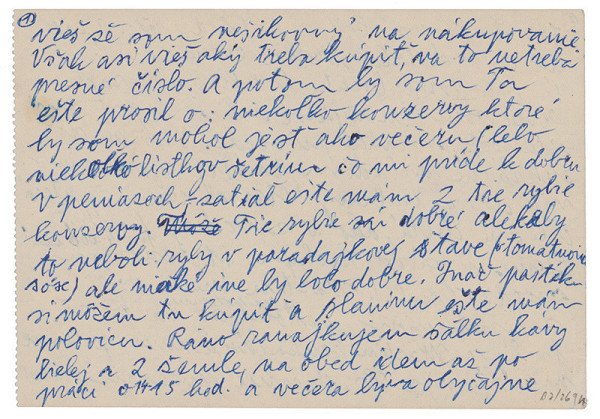 ①
vieš že som nešikovný na nákupovanie.
Však asi vieš aký treba kúpiť, na to netreba
presné číslo. A potom by som Ťa
ešte prosil o: niekoľko konzervy ktoré
by som mohol jesť ako večeru (lebo
niekoľko lístkov šetrím čo mi príde k dobru
v peniazoch – zatiaľ ešte mám 2 tie rybie
konzervy. Tie rybie sú dobré ale keby
to neboli ryby v paradajkovej štave (tomatnoi
sósx) ale niaké ine by bolo dobre. Inač paštéku
si môžem tu kúpiť a slaninu ešte mám
polovicu. Ráno raňajkujem šálku kávy
bielej a 2 žemle, na obed idem až po
práci o 14-15 hod. a večera býva obyčajne